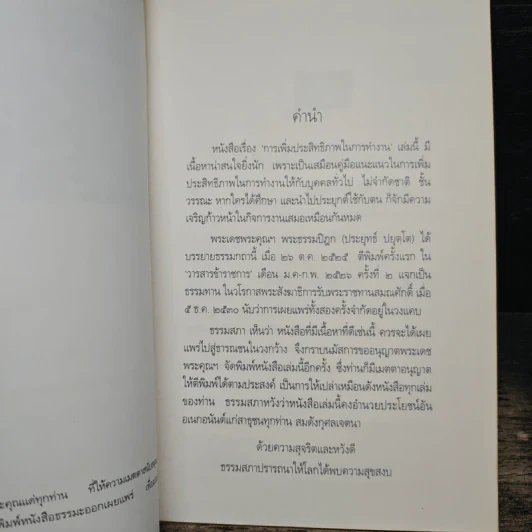 คำนำ
หนังสือเรื่อง 'การเพิ่มประสิทธิภาพในการทำงาน' เล่มนี้ มี
เนื้อหาน่าสนใจยิ่งนัก เพราะเป็นเสมือนคู่มือแนะแนวในการเพิ่ม
ประสิทธิภาพในการทำงานให้กับบุคคลทั่วไป ไม่จำกัดชาติ ชั้น
วรรณะ หากใครได้ศึกษา และนำไปประยุกต์ใช้กับตน ก็จักมีความ
เจริญก้าวหน้าในกิจการงานเสมอเหมือนกันหมด
พระเดชพระคุณฯ พระธรรมปิฎก (ประยุทธ์ ปยุตฺโต) ได้
บรรยายธรรมกถานี้ เมื่อ ๒๖ ต.ค. ๒๕๒๕ ตีพิมพ์ครั้งแรก ใน
'วารสารข้าราชการ' เดือน ม.ค-ก.พ. ๒๕๒๖ ครั้งที่ ๒ แจกเป็น
ธรรมทาน ในวโรกาสพระสังฆาธิการรับพระราชทานสมณศักดิ์ เมื่อ
๕ ธ.ค. ๒๕๓๐ นับว่าการเผยแพร่ทั้งสองครั้งจำกัดอยู่ในวงแคบ
ธรรมสภา เห็นว่า หนังสือที่มีเนื้อหาที่ดีเช่นนี้ ควรจะได้เผย
แพร่ไปสู่ธารณชนในวงกว้าง จึงกราบนมัสการขออนุญาตพระเดช
พระคุณฯ จัดพิมพ์หนังสือเล่มนี้อีกครั้ง ซึ่งท่านก็มีเมตตาอนุญาต
ให้ตีพิมพ์ได้ตามประสงค์ เป็นการให้เปล่าเหมือนดังหนังสือทุกเล่ม
ของท่าน ธรรมสภาหวังว่าหนังสือเล่มนี้คงอำนวยประโยชน์อัน
อเนกอนันต์แก่สาธุชนทุกท่าน สมดังกุศลเจตนา
ด้วยความสุจริตและหวังดี
ธรรมสภาปรารถนาให้โลกได้พบความสุขสงบ
ะคุณแด่ทุกท่าน ที่ให้ความเมตตา
พิมพ์หนังสือธรรมะออกเผยแพร่